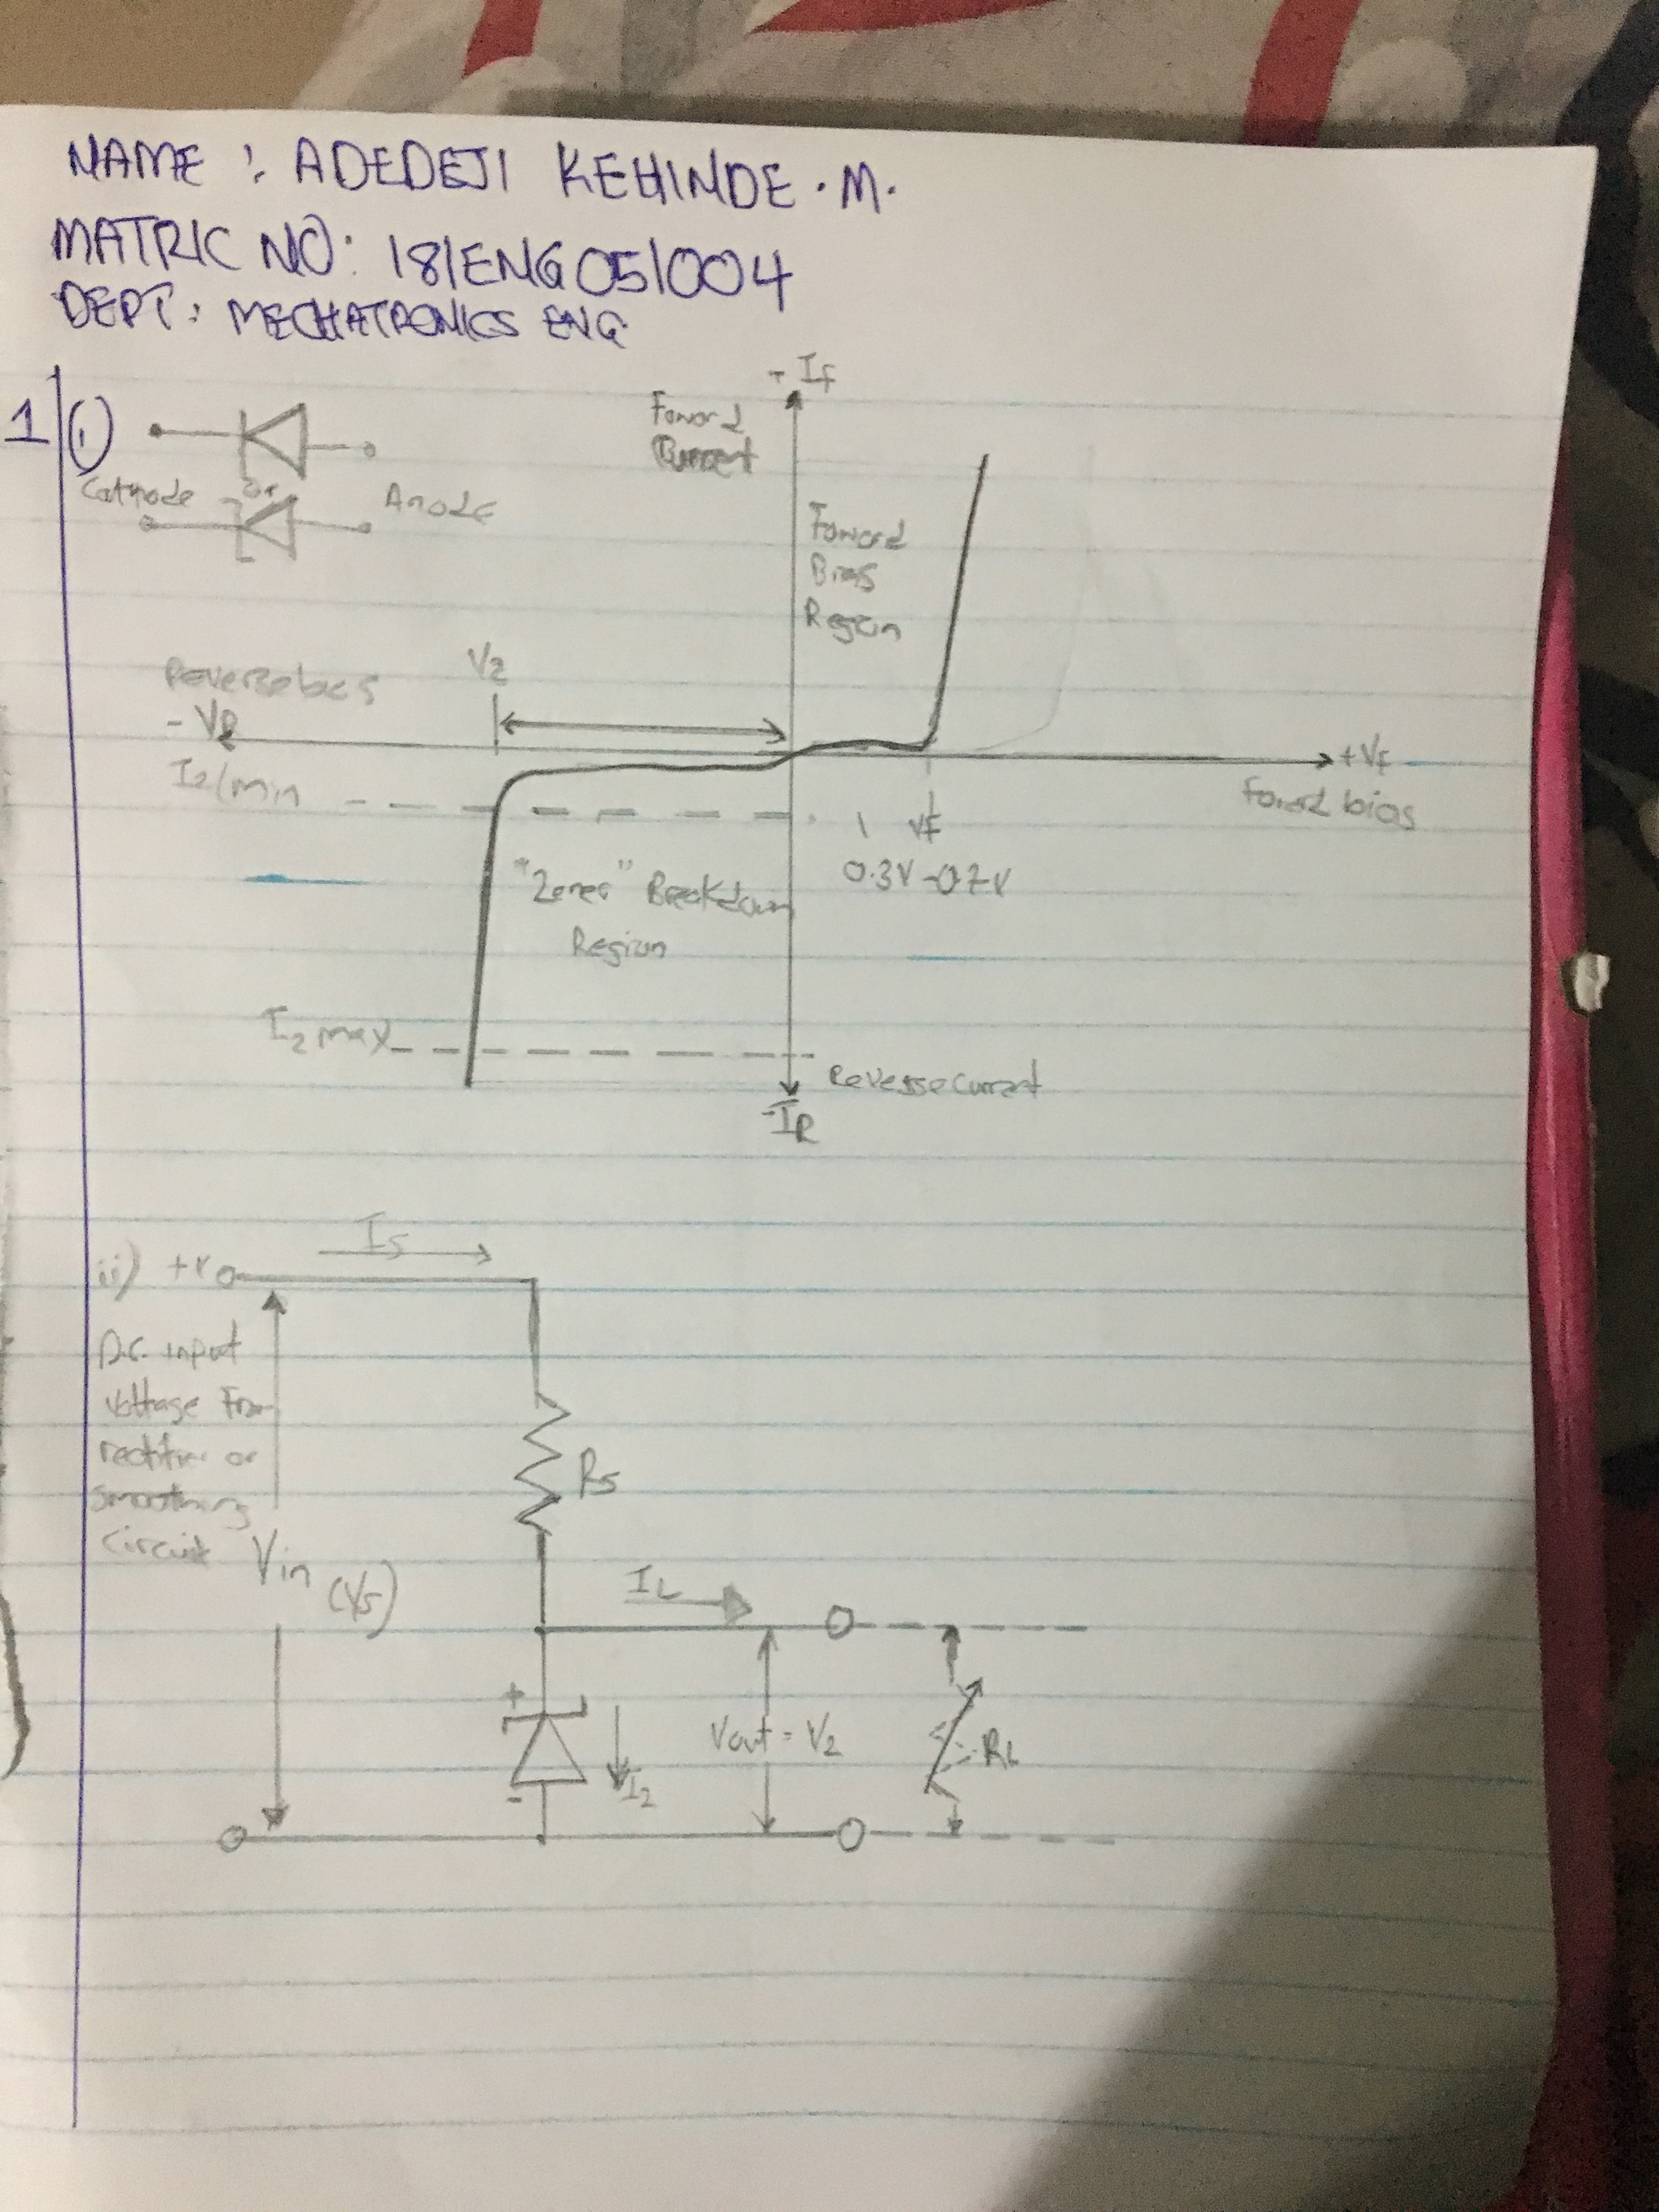 NAME : ADEDEJI KEHINDE .M.
MATRIC NO: 18/ENG05/004
DEPT: MECHATRONICS ENG
1 (i)
Cathode or Anode
+ If
Foward
Current
Foward
Bias
Region
Vz
Reversebias
- VR
+VF
Foward bias
Iz(min
VF
0.3V-0.7V
"Zener" Breakdown
Region
Iz max
Reversecurrent
-IR
ii) +V
Is
D.C. input
voltage from
rectifier or
smoothing
circuit
Vin
(Vs)
Rs
IL
+
Vout = Vz
RL
Iz
-